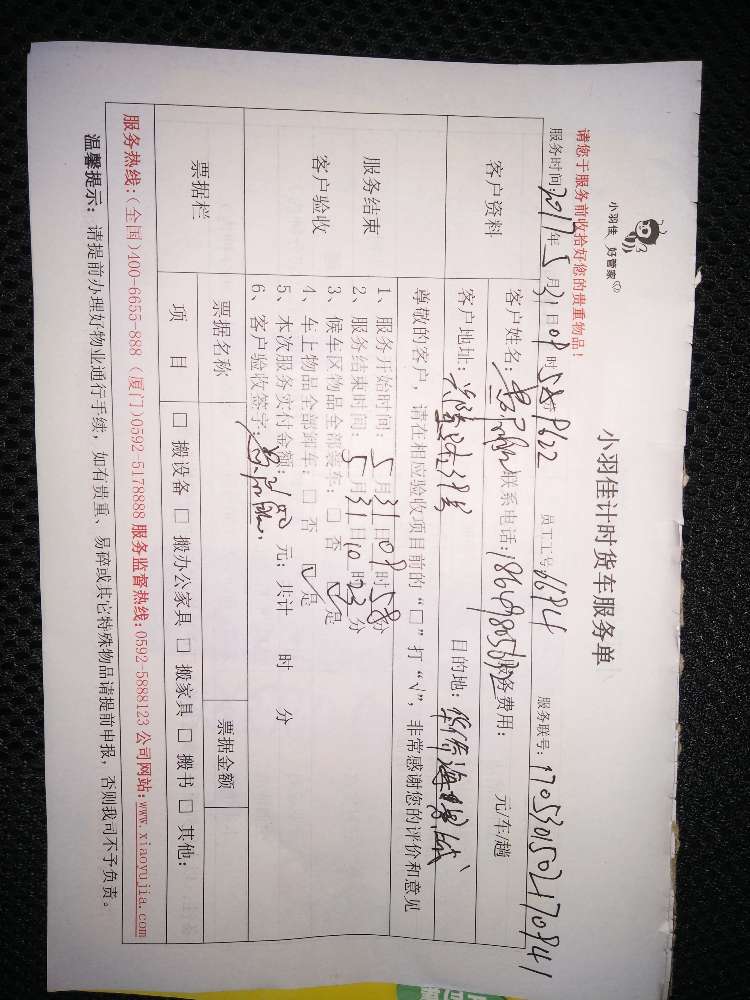 小羽佳 好管家
小羽佳计时货车服务单
请您于服务前收拾好您的贵重物品!
服务时间: 2017年5月31日09时58分 员工工号: 服务联号:
客户资料
客户姓名: 联系电话: 服务费用: 元/车/趟
客户地址: 目的地:
尊敬的客户,请在相应验收项目前的“□”打“√”,非常感谢您的评价和意见
服务结束
客户验收
1、服务开始时间: 5月31日09时58分
2、服务结束时间: 5月31日10时23分
3、候车区物品全部装车: □ 否 ☑ 是
4、车上物品全部卸车: □ 否 ☑ 是
5、本次服务实付金额: 元; 共计 时 分
6、客户验收签字:
票据栏
票据名称 票据金额
项 目 □ 搬设备 □ 搬办公家具 □ 搬家具 □ 搬书 □ 其他:
服务热线:(全国)400-6655-888 (厦门)0592-5178888 服务监督热线:0592-5888123 公司网站:www.xiaoyujia.com
温馨提示: 请提前办理好物业通行手续, 如有贵重、易碎或其它特殊物品请提前申报, 否则我司不予负责。